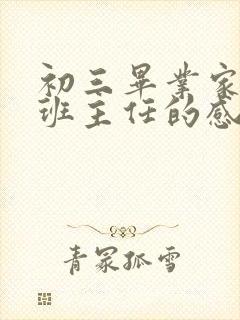 初三畢業家
班主任的感
青冢孤雪